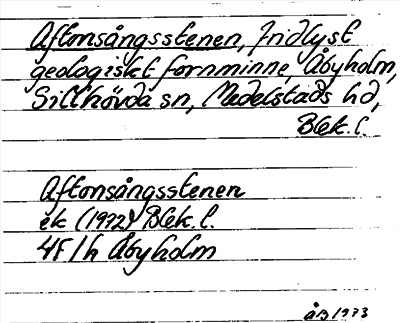 Aftonsångsstenen, fridlyst
geologiskt fornminne, Åbyholm,
Sillhövda sn, Medelstads hd,
Blek. l.
Aftonsångsstenen
ek (1972) Blek. l.
4F 1h Åbyholm
åB 1973